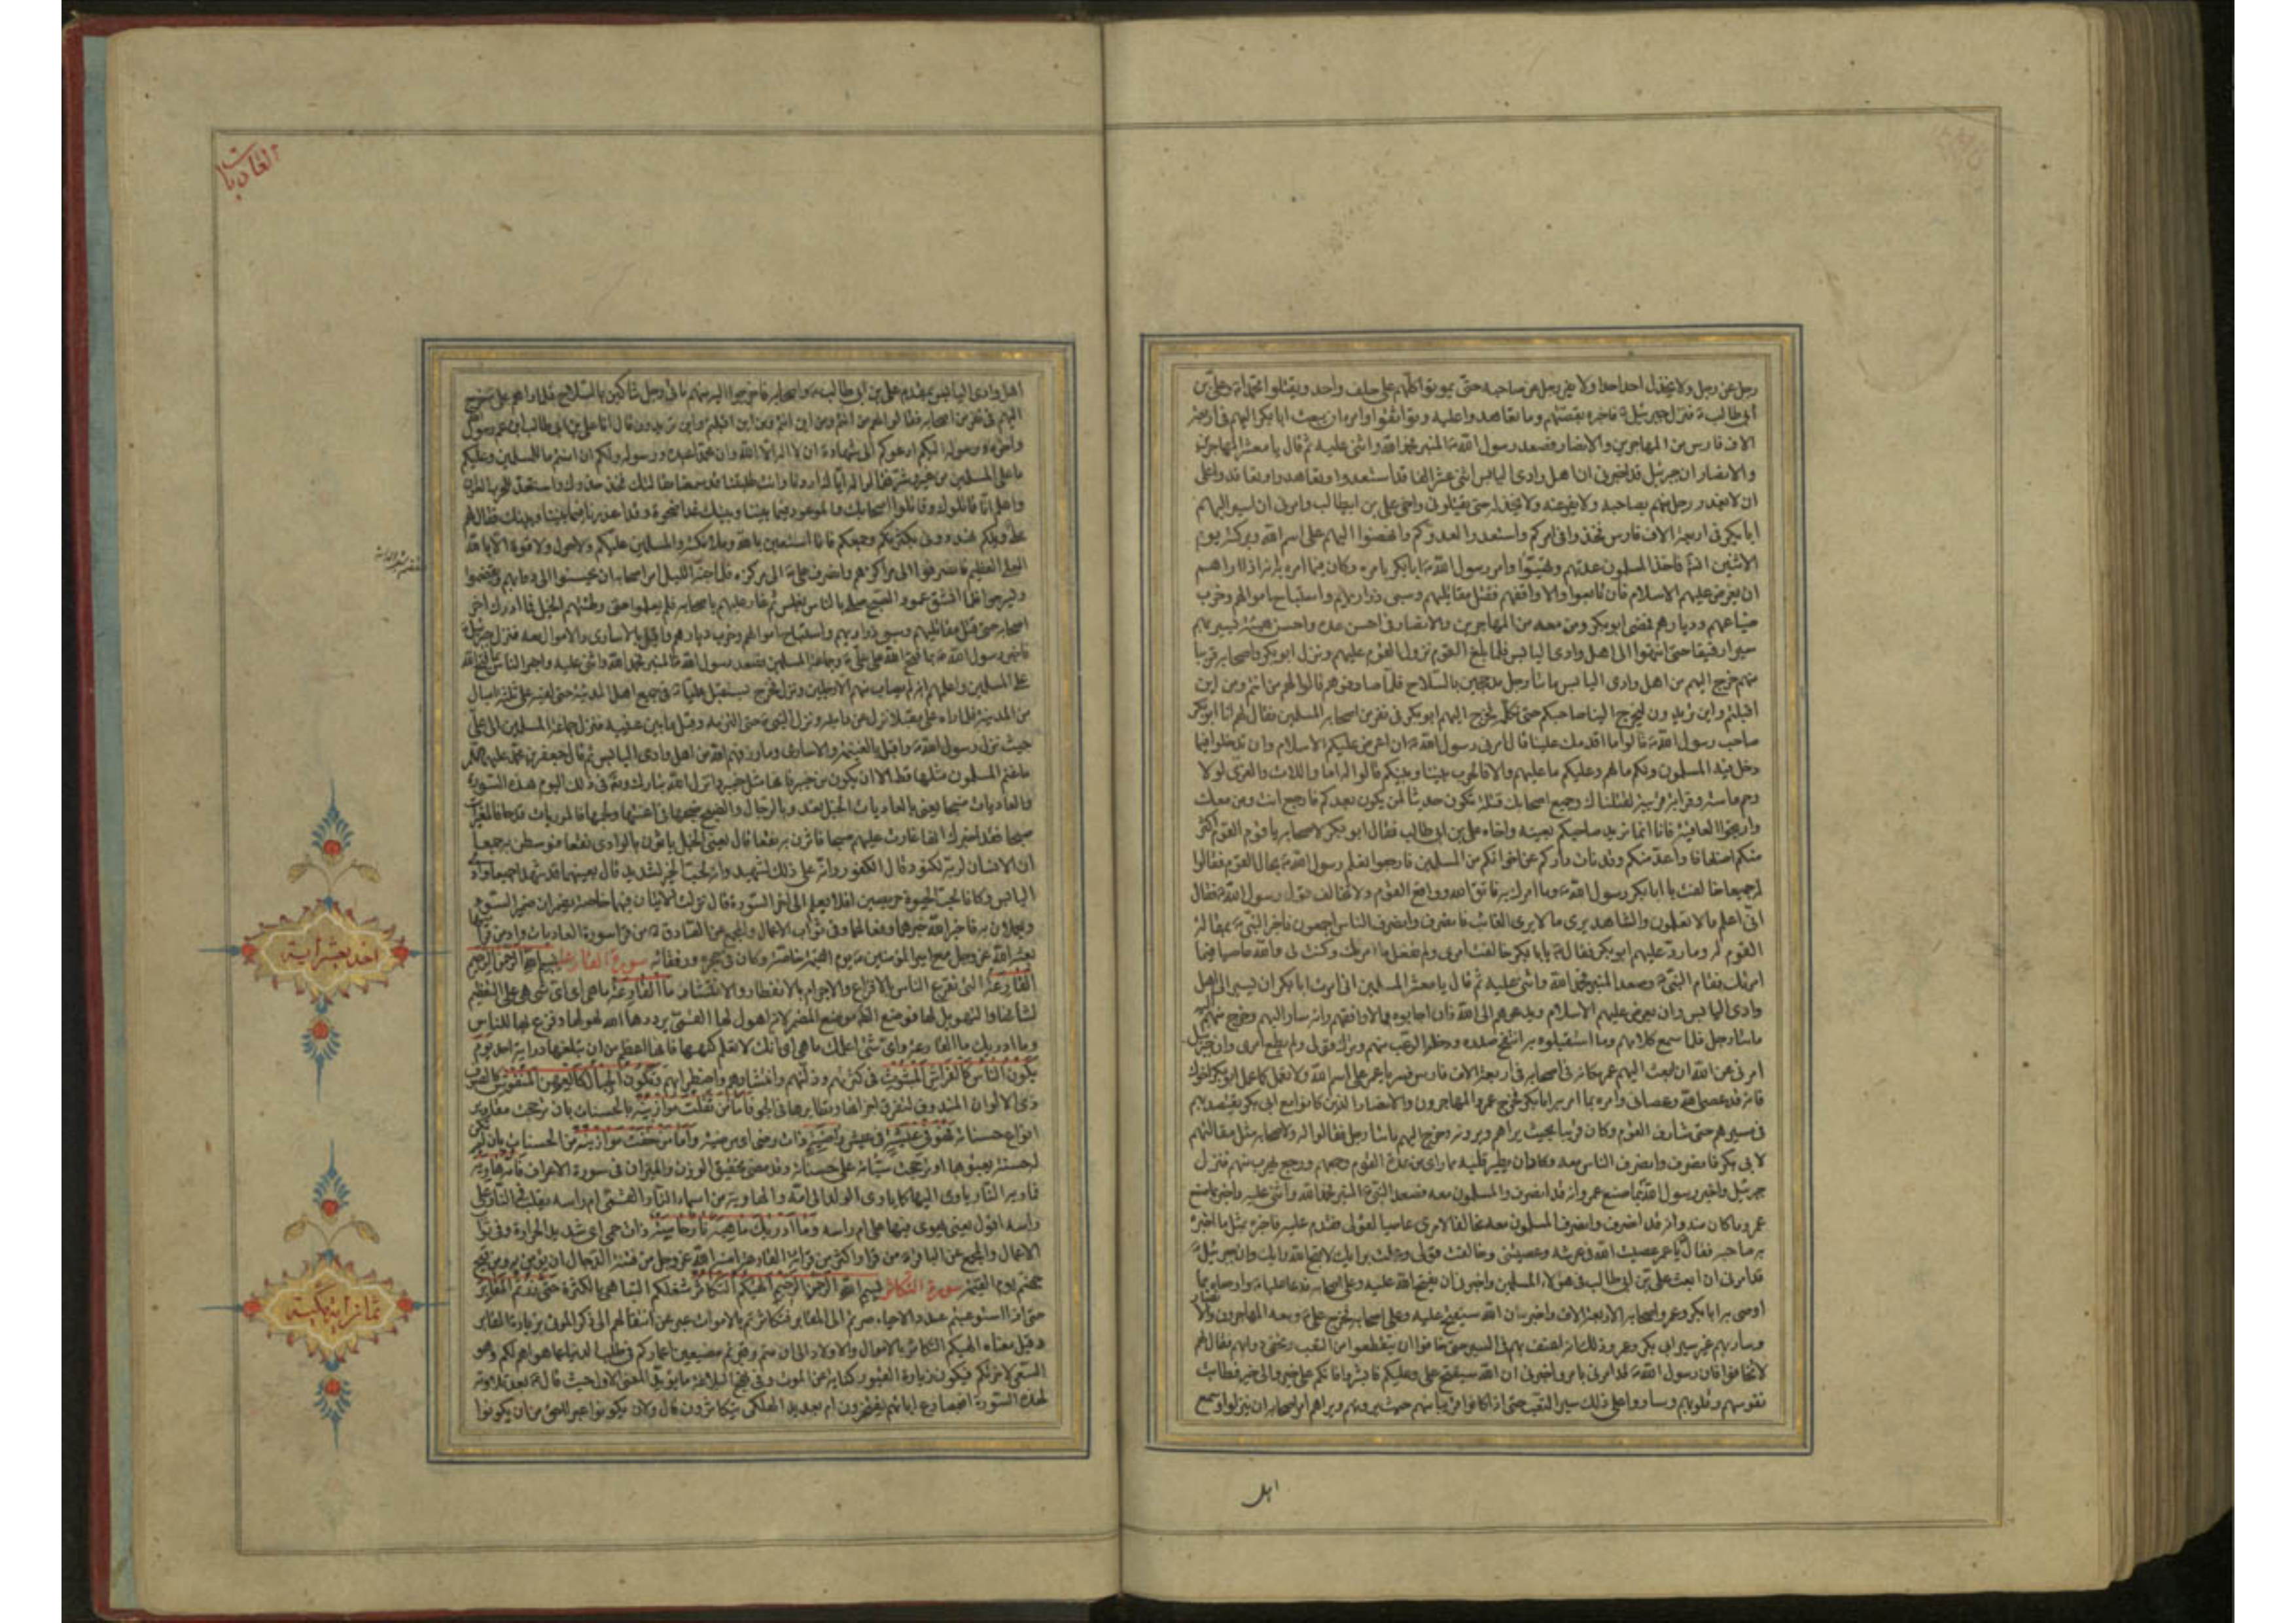 رجل عن رجل ولا يخذل احد احدا ولا يفر رجل عن صاحبه حتى يموتوا كلهم على حلف واحد ويقتلوا محمدا وعلي بن
ابي طالب فنزل جبرئيل فاخبره بقصتهم وما تعاهدوا عليه وتواثقوا وامره ان يبعث ابا بكر اليهم في اربعة
الاف فارس من المهاجرين والانصار فصعد رسول الله المنبر فحمد الله واثنى عليه ثم قال يا معشر المهاجرين
والانصار ان جبرئيل قد اخبرني ان اهل وادي اليابس اثنى عشر الفا قد استعدوا وتعاهدوا وتعاقدوا على
ان لا يغدر رجل منهم بصاحبه ولا يفر عنه ولا يخذله حتى يقتلوني واخي علي بن ابيطالب وامرني ان اسير اليهم
ابا بكر في اربعة الاف فارس فخذوا في امركم واستعدوا لعدوكم وانهضوا اليهم على اسم الله وبركته يوم
الاثنين انشاء الله فاخذ المسلمون عدتهم وتهيئوا وامر رسول الله ابا بكر بامره وكان فيما امره به انه اذا راهم
ان يعرض عليهم الاسلام فان تابعوا والا واقفهم فقتل مقاتليهم وسبى ذراريهم واستباح اموالهم وخرب
ضياعهم وديارهم فمضى ابو بكر ومن معه من المهاجرين والانصار في احسن عدة واحسن هيئة يسير بهم
سيرا رفيقا حتى انتهوا الى اهل وادي اليابس فلما بلغ القوم نزول القوم عليهم ونزل ابو بكر واصحابه قريبا
منهم خرج اليهم من اهل وادي اليابس مائتا رجل مدججين بالسلاح فلما صادفوهم قالوا لهم من انتم ومن اين
اقبلتم واين تريدون ليخرج الينا صاحبكم حتى نكلمه فخرج اليهم ابو بكر في نفر من اصحابه المسلمين فقال لهم انا ابو بكر
صاحب رسول الله قالوا ما اقدمك علينا قال امرني رسول الله ان اعرض عليكم الاسلام وان تدخلوا فيما
دخل فيه المسلمون ولكم ما لهم وعليكم ما عليهم والا فالحرب بيننا وبينكم قالوا له اما واللات والعزى لولا
رحم ماسة وقرابة قريبة لقتلناك وجميع اصحابك قتلة تكون حديثا لمن يكون بعدكم فارجع انت ومن معك
وارتجوا العافية فانا انما نريد صاحبكم بعينه واخاه علي بن ابي طالب فقال ابو بكر لاصحابه يا قوم القوم اكثر
منكم اضعافا واعد منكم وقد نات داركم عن اخوانكم من المسلمين فارجعوا نعلم رسول الله بحال القوم فقالوا
له جميعا خالفت يا ابا بكر رسول الله وما امرك به فاتق الله وواقع القوم ولا تخالف قول رسول الله فقال
اني اعلم ما لا تعلمون والشاهد يرى ما لا يرى الغائب فانصرف وانصرف الناس اجمعون فاخبر النبي بمقالة
القوم له وما رد عليهم ابو بكر فقال يا ابا بكر خالفت امري ولم تفعل ما امرتك وكنت لي والله عاصيا فيما
امرتك فقام النبي وصعد المنبر فحمد الله واثنى عليه ثم قال يا معشر المسلمين اني امرت ابا بكر ان يسير الى اهل
وادي اليابس وان يعرض عليهم الاسلام ويدعوهم الى الله فان اجابوه والا واقفهم وانه سار اليهم وخرج منهم اليه
مائتا رجل فلما سمع كلامهم وما استقبلوه به انتفخ صدره ودخله الرعب منهم وترك قولي ولم يطع امري وان جبرئيل
امرني عن الله ان ابعث اليهم عمر مكانه في اصحابه في اربعة الاف فارس فسر يا عمر على اسم الله ولا تعمل كما عمل ابو بكر اخوك
فانه قد عصى الله وعصاني وامره بما امر به ابا بكر فخرج عمر والمهاجرون والانصار الذين كانوا مع ابي بكر يقتصد بهم
في مسيرهم حتى شارف القوم وكان قريبا بحيث يراهم ويرونه وخرج اليهم مائتا رجل فقالوا له ولاصحابه مثل مقالتهم
لابي بكر فانصرف وانصرف الناس معه وكاد ان يطير قلبه مما راى من عدة القوم وجمعهم ورجع يهرب منهم فنزل
جبرئيل واخبر رسول الله بما صنع عمر وانه قد انصرف والمسلمون معه فصعد النبي المنبر فحمد الله واثنى عليه واخبر بما صنع
عمر وما كان منه وانه قد انصرف وانصرف المسلمون معه مخالفا لامري عاصيا لقولي فقدم عليه فاخبره بمثل ما اخبره
به صاحبه فقال يا عمر عصيت الله في عرشه وعصيتني وخالفت قولي وعملت برايك لا قبح الله رايك وان جبرئيل
قد امرني ان ابعث علي بن ابي طالب في هؤلاء المسلمين واخبرني ان يفتح الله عليه وعلى اصحابه فدعا عليا واوصاه بما
اوصى به ابا بكر وعمر واصحابه الاربعة الاف واخبره ان الله سيفتح عليه وعلى اصحابه فخرج علي ومعه المهاجرون والانصار
وسار بهم غير سير ابي بكر وعمر وذلك انه اعنف بهم في السير حتى خافوا ان ينقطعوا من التعب وتحفى دوابهم فقال لهم
لا تخافوا فان رسول الله قد امرني بامر واخبرني ان الله سيفتح علي وعليكم فابشروا فانكم على خير والى خير فطابت
نفوسهم وقلوبهم وساروا على ذلك سير التعب حتى اذا كانوا قريبا منهم حيث يرونهم ويراهم امر اصحابه ان ينزلوا وسمع
اهل
العاديات
اهل وادي اليابس بمقدم علي بن ابي طالب واصحابه فاخرجوا اليه منهم مائتي رجل شاكين بالسلاح فلما راهم علي خرج
اليهم في نفر من اصحابه فقالوا لهم من انتم ومن اين انتم ومن اين اقبلتم واين تريدون قال انا علي بن ابي طالب ابن عم رسول الله
واخوه ورسوله اليكم ادعوكم الى شهادة ان لا اله الا الله وان محمدا عبده ورسوله ولكم ان امنتم ما للمسلمين وعليكم
ما على المسلمين من خير وشر فقالوا له اياك اردنا وانت طلبتنا قد سمعنا مقالتك فخذ حذرك واستعد للحرب العوان
واعلم انا قاتلوك وقاتلوا اصحابك والموعود فيما بيننا وبينك غدا ضحوة وقد اعذرنا فيما بيننا وبينك فقال لهم
علي ويلكم تهددوني بكثرتكم وجمعكم فانا استعين بالله وملائكته والمسلمين عليكم ولا حول ولا قوة الا بالله
العلي العظيم فانصرفوا الى مراكزهم وانصرف علي الى مركزه فلما جنه الليل امر اصحابه ان يحسنوا الى دوابهم ويقضموا
ويسرجوا فلما انشق عمود الصبح صلى بالناس بغلس ثم غار عليهم باصحابه فلم يعلموا حتى وطئتهم الخيل فما ادرك اخر
اصحابه حتى قتل مقاتليهم وسبى ذراريهم واستباح اموالهم وخرب ديارهم واقبل بالاسارى والاموال معه فنزل جبرئيل
فاخبر رسول الله بما فتح الله على علي وجماعة المسلمين فصعد رسول الله المنبر فحمد الله واثنى عليه واخبر الناس بما فتح الله
على المسلمين واعلمهم انه لم يصب منهم الا رجلين ونزل فخرج يستقبل عليا في جميع اهل المدينة حتى لقيه على ثلثة اميال
من المدينة فلما راه علي مقبلا نزل عن دابته ونزل النبي حتى التزمه وقبل ما بين عينيه فنزل جماعة المسلمين الى علي
حيث نزل رسول الله واقبل بالغنيمة والاسارى وما رزقهم الله من اهل وادي اليابس ثم قال جعفر بن محمد عليهما السلام
ما غنم المسلمون مثلها قط الا ان يكون من خيبر فانها مثل خيبر وانزل الله تبارك وتعالى في ذلك اليوم هذه السورة
والعاديات ضبحا يعني بالعاديات الخيل تعدو بالرجال والضبح ضبحها في اعنتها ولجمها فالموريات قدحا فالمغيرات
صبحا فقد اخبرك انها غارت عليهم صبحا فاثرن به نقعا قال يعني الخيل ياثرن بالوادي نقعا فوسطن به جمعا
ان الانسان لربه لكنود قال لكفور وانه على ذلك لشهيد وانه لحب الخير لشديد قال يعنيهما قد شهدا جميعا وادي
اليابس وكانا لحب الحيوة حريصين افلا يعلم الى اخر السورة قال نزلت الايتان فيهما خاصة يضمران ضمير السوء
ويعملان به فاخبر الله خبرهما وفعالهما وفي ثواب الاعمال والمجمع عن الصادق من قرا سورة العاديات وادمن قراءتها
بعثه الله عز وجل مع امير المؤمنين يوم القيمة خاصة وكان في حجره ورفقائه سورة القارعة بسم الله الرحمن الرحيم
القارعة التي تقرع الناس بالافزاع والاجرام بالانفطار والانتشار ما القارعة ما هي اي اي شيء هي على التعظيم
لشانها والتهويل لها فوضع الظاهر موضع المضمر لانه اهول لها القمي يرددها الله لهولها وفزع بها الناس
وما ادريك ما القارعة واي شيء اعلمك ما هي اي انك لا تعلم كنهها فانها اعظم من ان تبلغها دراية احد يوم
يكون الناس كالفراش المبثوث في كثرتهم وذلتهم وانتشارهم واضطرابهم وتكون الجبال كالعهن المنفوش كالصوف
ذي الالوان المندوف لتفرق اجزائها وتطايرها في الجو فاما من ثقلت موازينه بالحسنات بان ترجحت مقادير
انواع حسناته فهو في عيشة في عيش راضية ذات رضى اي مرضية واما من خفت موازينه من الحسنات بان لم يكن
له حسنة يعبؤ بها او ترجحت سيئاته على حسناته وقد مضى تحقيق الوزن والميزان في سورة الاعراف فامه هاوية
فماويه النار ياوي اليها كما ياوي الولد الى امه والهاوية من اسماء النار القمي ام راسه يقلب في النار على
راسه اقول يعني يهوي فيها على ام راسه وما ادريك ما هيه نار حامية ذات حمى اي شديد الحرارة وفي ثواب
الاعمال والمجمع عن الباقر من قرا واكثر من قراءة القارعة امنه الله عز وجل من فتنة الدجال ان يؤمن به ومن فيح
جهنم يوم القيمة سورة التكاثر بسم الله الرحمن الرحيم الهيكم التكاثر شغلكم التباهي بالكثرة حتى زرتم المقابر
حتى اذا استوعبتم عدد الاحياء صرتم الى المقابر فتكاثرتم بالاموات عبر عن انتقالهم الى ذكر الموتى بزيارة المقابر
وقيل معناه الهيكم التكاثر بالاموال والاولاد الى ان متم وقبرتم مضيعين اعماركم في طلب الدنيا عما هو اهم لكم وهو
السعي لاخرتكم فيكون زيارة القبور كناية عن الموت وفي نهج البلاغة ما يؤيد المعنى الاول حيث قال بعد تلاوته
لهذه السورة افبمصارع ابائهم يفخرون ام بعديد الهلكى يتكاثرون قال ولان يكونوا عبرا احق من ان يكونوا
احد عشر اية
ثمان اية مكية